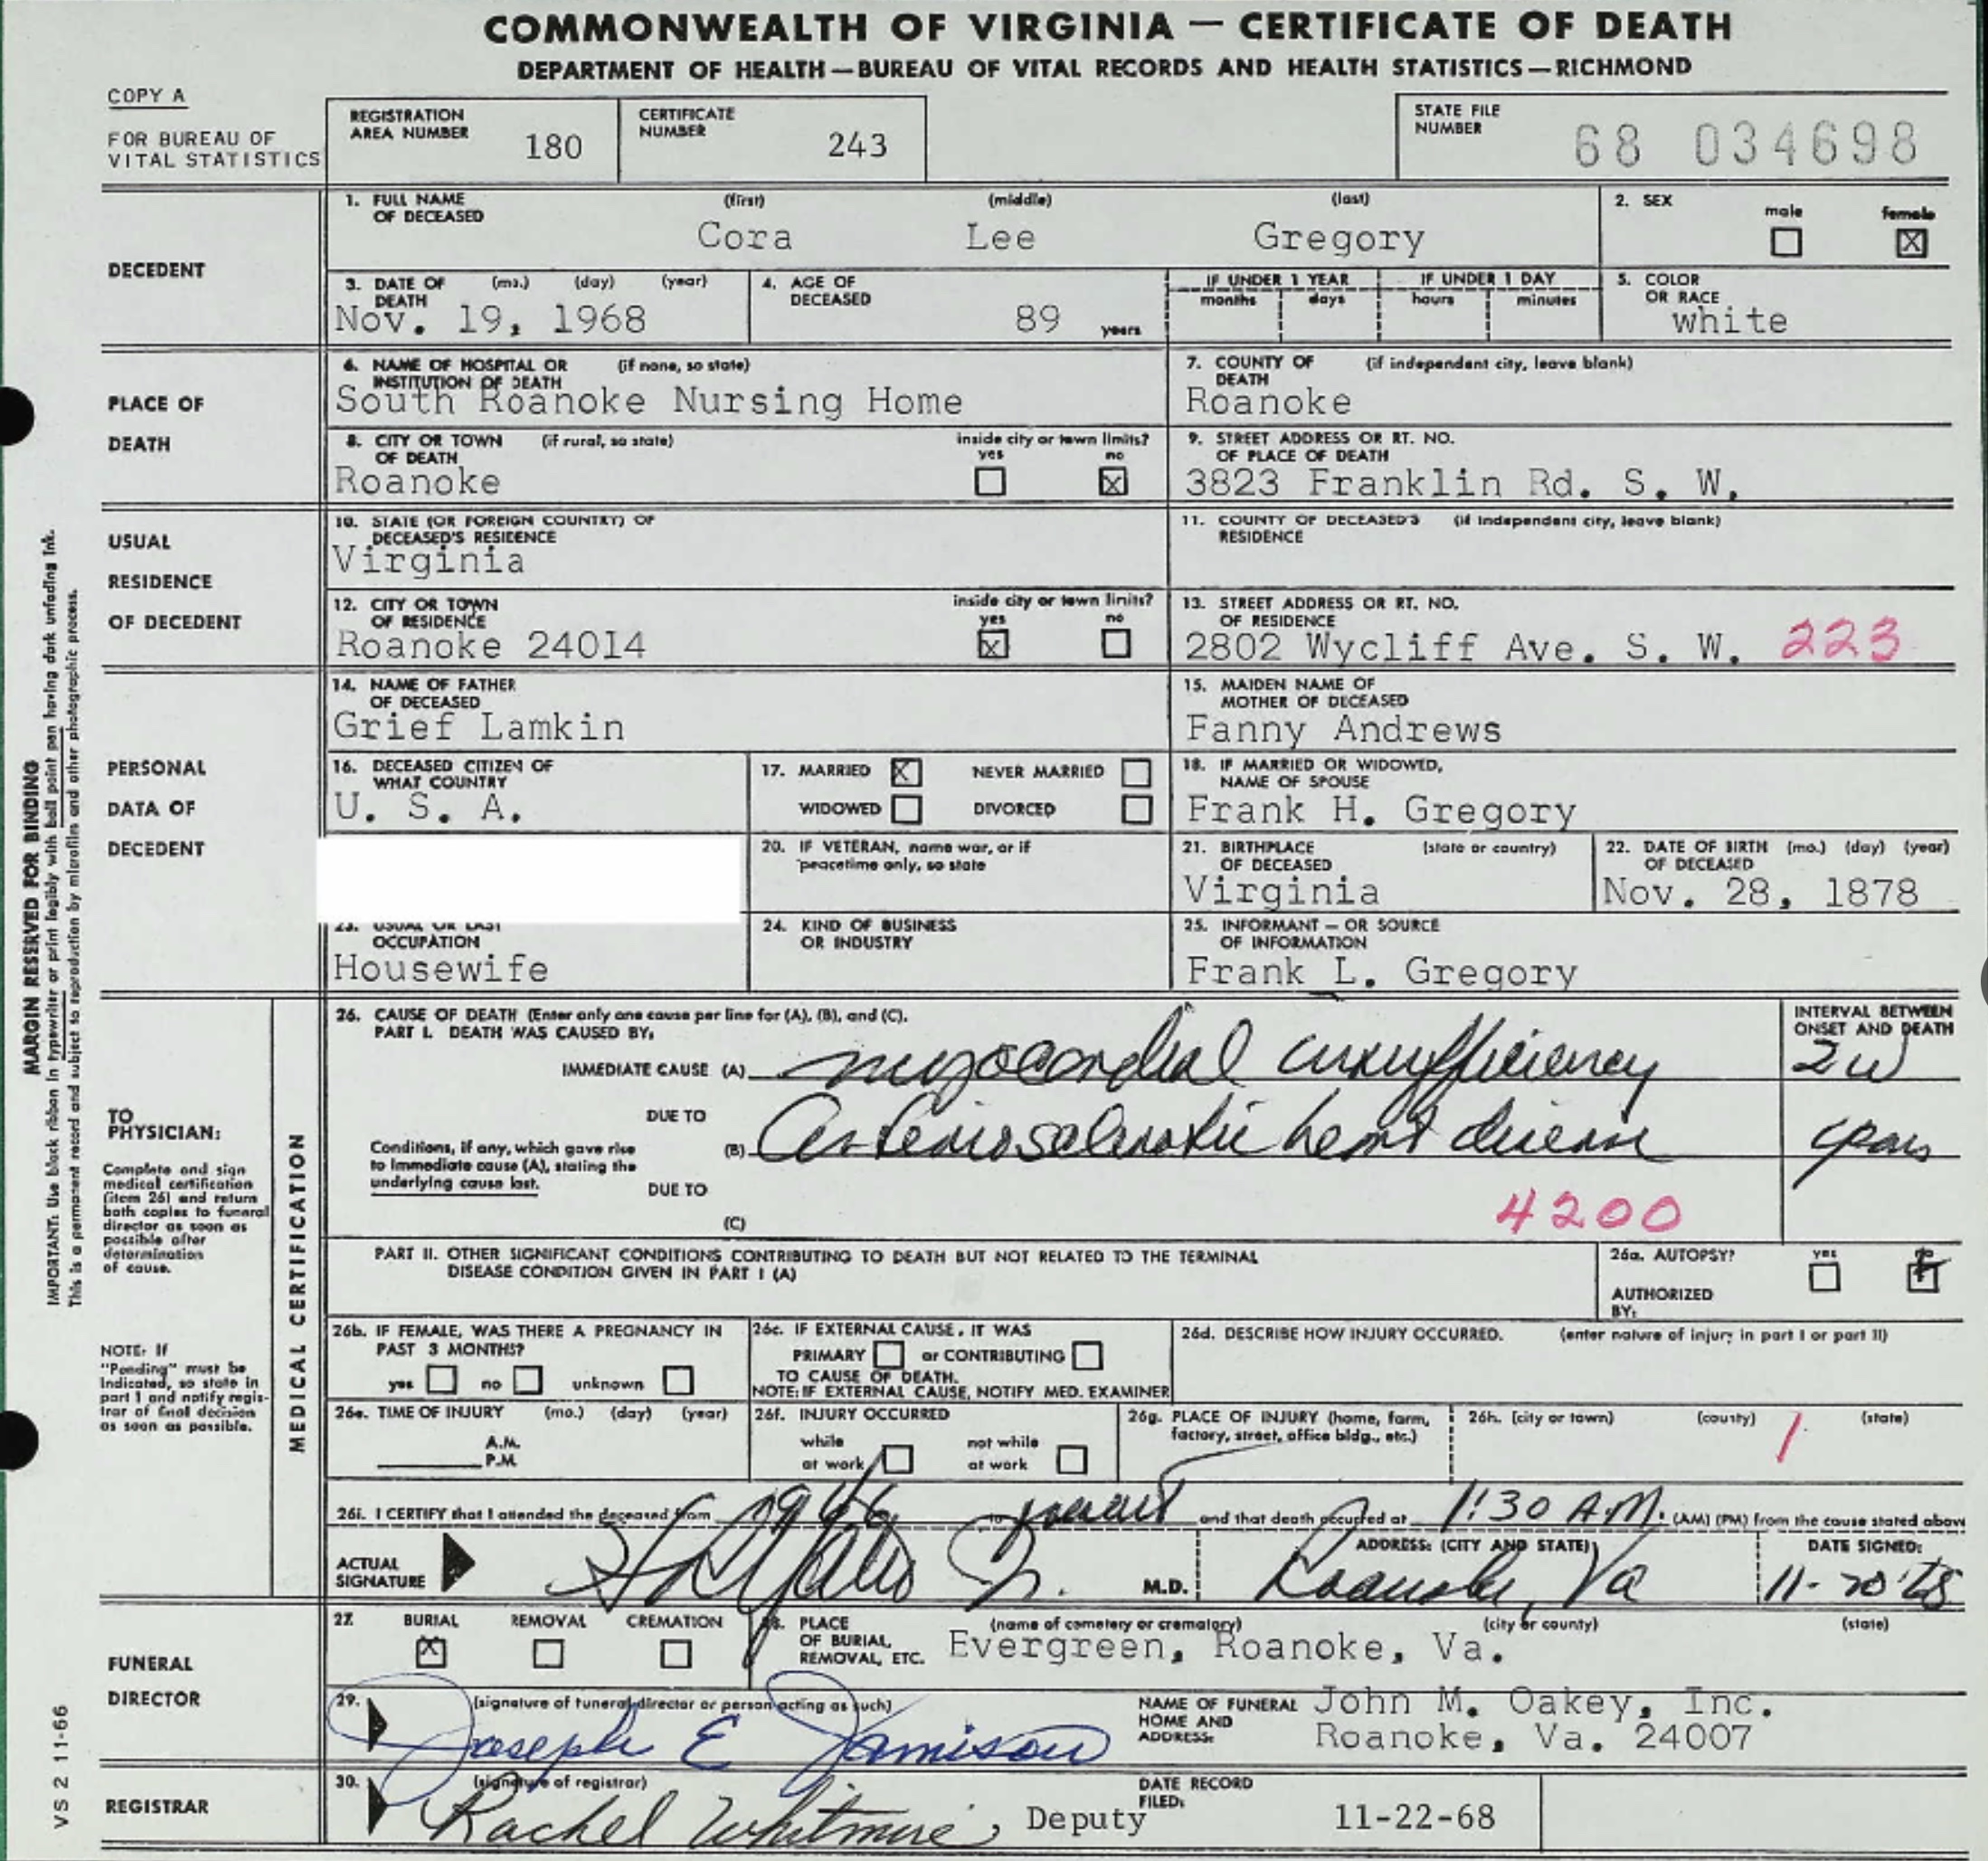 COMMONWEALTH OF VIRGINIA — CERTIFICATE OF DEATH
DEPARTMENT OF HEALTH—BUREAU OF VITAL RECORDS AND HEALTH STATISTICS—RICHMOND
COPY A
FOR BUREAU OF
VITAL STATISTICS
REGISTRATION
AREA NUMBER 180
CERTIFICATE
NUMBER 243
STATE FILE
NUMBER 68 034698
DECEDENT
1. FULL NAME (first) (middle) (last)
OF DECEASED
Cora Lee Gregory
2. SEX
male female
X
3. DATE OF (mo.) (day) (year)
DEATH
Nov. 19, 1968
4. AGE OF
DECEASED
89 years
IF UNDER 1 YEAR IF UNDER 1 DAY
months days hours minutes
5. COLOR
OR RACE
white
PLACE OF
DEATH
6. NAME OF HOSPITAL OR (if none, so state)
INSTITUTION OF DEATH
South Roanoke Nursing Home
7. COUNTY OF (if independent city, leave blank)
DEATH
Roanoke
8. CITY OR TOWN (if rural, so state) inside city or town limits?
OF DEATH yes no
Roanoke X
9. STREET ADDRESS OR RT. NO.
OF PLACE OF DEATH
3823 Franklin Rd. S. W.
USUAL
RESIDENCE
OF DECEDENT
10. STATE (OR FOREIGN COUNTRY) OF
DECEASED'S RESIDENCE
Virginia
11. COUNTY OF DECEASED'S (if independent city, leave blank)
RESIDENCE
12. CITY OR TOWN inside city or town limits?
OF RESIDENCE yes no
Roanoke 24014 X
13. STREET ADDRESS OR RT. NO.
OF RESIDENCE
2802 Wycliff Ave. S. W. 223
PERSONAL
DATA OF
DECEDENT
14. NAME OF FATHER
OF DECEASED
Grief Lamkin
15. MAIDEN NAME OF
MOTHER OF DECEASED
Fanny Andrews
16. DECEASED CITIZEN OF
WHAT COUNTRY
U. S. A.
17. MARRIED X NEVER MARRIED
WIDOWED DIVORCED
18. IF MARRIED OR WIDOWED,
NAME OF SPOUSE
Frank H. Gregory
20. IF VETERAN, name war, or if
peacetime only, so state
21. BIRTHPLACE (state or country)
OF DECEASED
Virginia
22. DATE OF BIRTH (mo.) (day) (year)
OF DECEASED
Nov. 28, 1878
23. USUAL OR LAST
OCCUPATION
Housewife
24. KIND OF BUSINESS
OR INDUSTRY
25. INFORMANT — OR SOURCE
OF INFORMATION
Frank L. Gregory
MARGIN RESERVED FOR BINDING
IMPORTANT: Use black ribbon in typewriter or print legibly with ball point pen having dark unfading ink.
This is a permanent record and subject to reproduction by microfilm and other photographic process.
TO
PHYSICIAN:
Complete and sign
medical certification
(item 26) and return
both copies to funeral
director as soon as
possible after
determination
of cause.
NOTE: If
"Pending" must be
indicated, so state in
part 1 and notify regis-
trar of final decision
as soon as possible.
MEDICAL CERTIFICATION
26. CAUSE OF DEATH (Enter only one cause per line for (A), (B), and (C).
PART I. DEATH WAS CAUSED BY:
INTERVAL BETWEEN
ONSET AND DEATH
IMMEDIATE CAUSE (A) myocardial insufficiency 2 w
DUE TO
Conditions, if any, which gave rise
to immediate cause (A), stating the
underlying cause last.
(B) Arteriosclerotic heart disease years
DUE TO
(C) 4200
PART II. OTHER SIGNIFICANT CONDITIONS CONTRIBUTING TO DEATH BUT NOT RELATED TO THE TERMINAL
DISEASE CONDITION GIVEN IN PART I (A)
26a. AUTOPSY? yes no
AUTHORIZED
BY:
26b. IF FEMALE, WAS THERE A PREGNANCY IN
PAST 3 MONTHS?
yes no unknown
26c. IF EXTERNAL CAUSE, IT WAS
PRIMARY or CONTRIBUTING
TO CAUSE OF DEATH.
NOTE: IF EXTERNAL CAUSE, NOTIFY MED. EXAMINER
26d. DESCRIBE HOW INJURY OCCURRED. (enter nature of injury in part I or part II)
26e. TIME OF INJURY (mo.) (day) (year)
A.M.
P.M.
26f. INJURY OCCURRED
while not while
at work at work
26g. PLACE OF INJURY (home, farm,
factory, street, office bldg., etc.)
26h. (city or town) (county) (state)
1
26i. I CERTIFY that I attended the deceased from 1966 to present and that death occurred at 1:30 A.M. (AM) (PM) from the cause stated above
ACTUAL
SIGNATURE Jr. M.D.
ADDRESS: (CITY AND STATE)
Roanoke, Va
DATE SIGNED:
11-20-68
FUNERAL
DIRECTOR
27. BURIAL REMOVAL CREMATION
X
28. PLACE (name of cemetery or crematory) (city or county) (state)
OF BURIAL,
REMOVAL, ETC. Evergreen, Roanoke, Va.
29. (signature of funeral director or person acting as such)
Joseph E Jamison
NAME OF FUNERAL
HOME AND
ADDRESS:
John M. Oakey, Inc.
Roanoke, Va. 24007
REGISTRAR
30. (signature of registrar)
Rachel Whitmire, Deputy
DATE RECORD
FILED:
11-22-68
VS 2 11-66